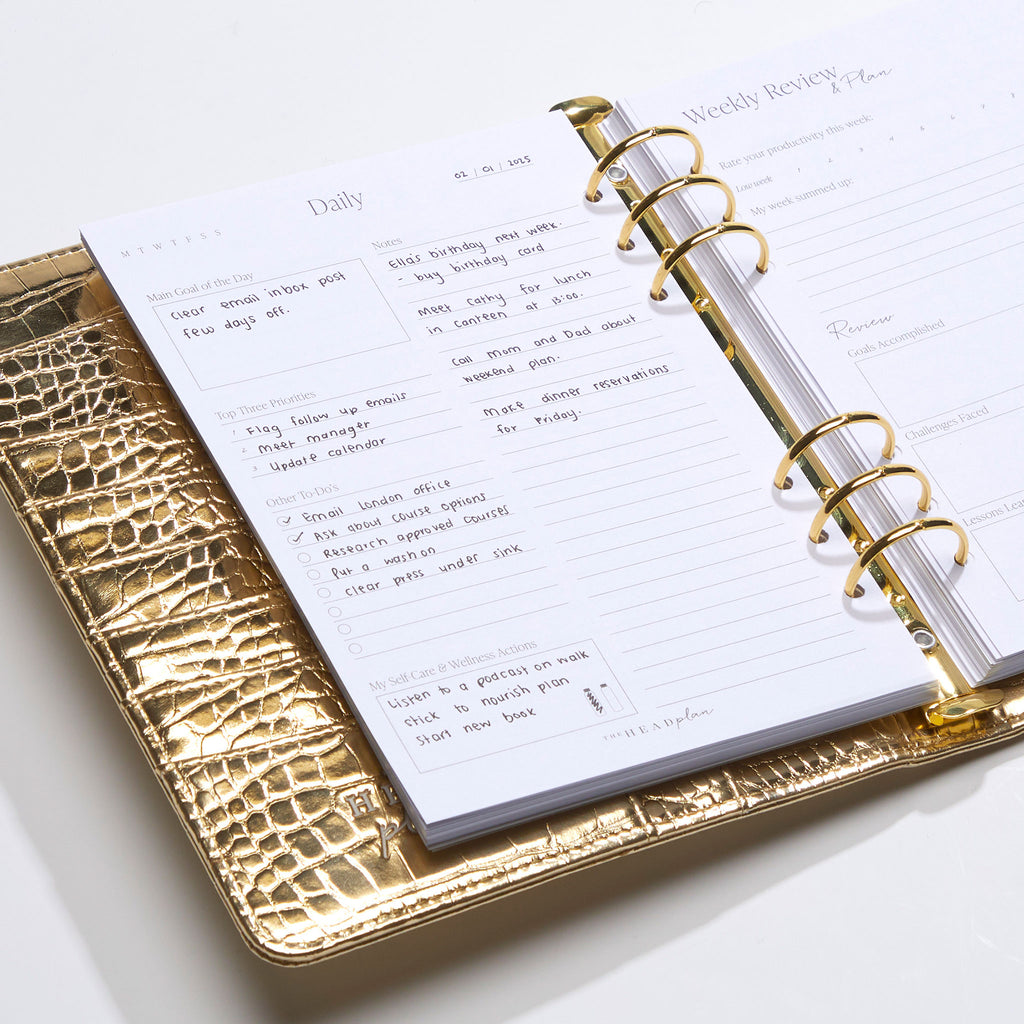 Daily
02 / 01 / 2025
M T W T F S S
Main Goal of the Day
Clear email inbox post
few days off.
Top Three Priorities
1 Flag follow up emails
2 Meet manager
3 Update calendar
Other To-Do's
Email London office
Ask about course options
Research approved courses
Put a wash on
Clear press under sink
My Self-Care & Wellness Actions
Listen to a podcast on walk
stick to nourish plan
Start new book
Notes
Ella's birthday next week.
- buy birthday card
Meet Cathy for lunch
in canteen at 13:00.
Call Mom and Dad about
weekend plan.
Make dinner reservations
for Friday.
THE HEAD plan
Weekly Review
& Plan
Rate your productivity this week:
Low week 1 2 3 4 5 6 7
My week summed up:
Review
Goals Accomplished
Challenges Faced
Lessons